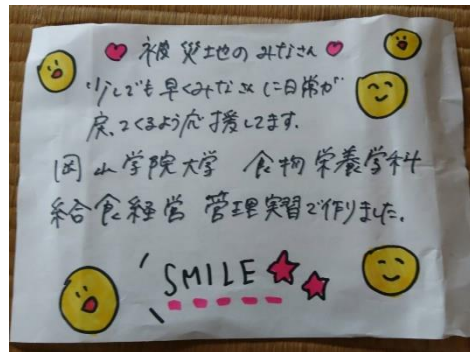 被災地のみなさん
少しでも早くみなさんに日常が
戻ってくるよう応援してます.
岡山学院大学 食物栄養学科
給食経営管理実習で作りました.
SMILE